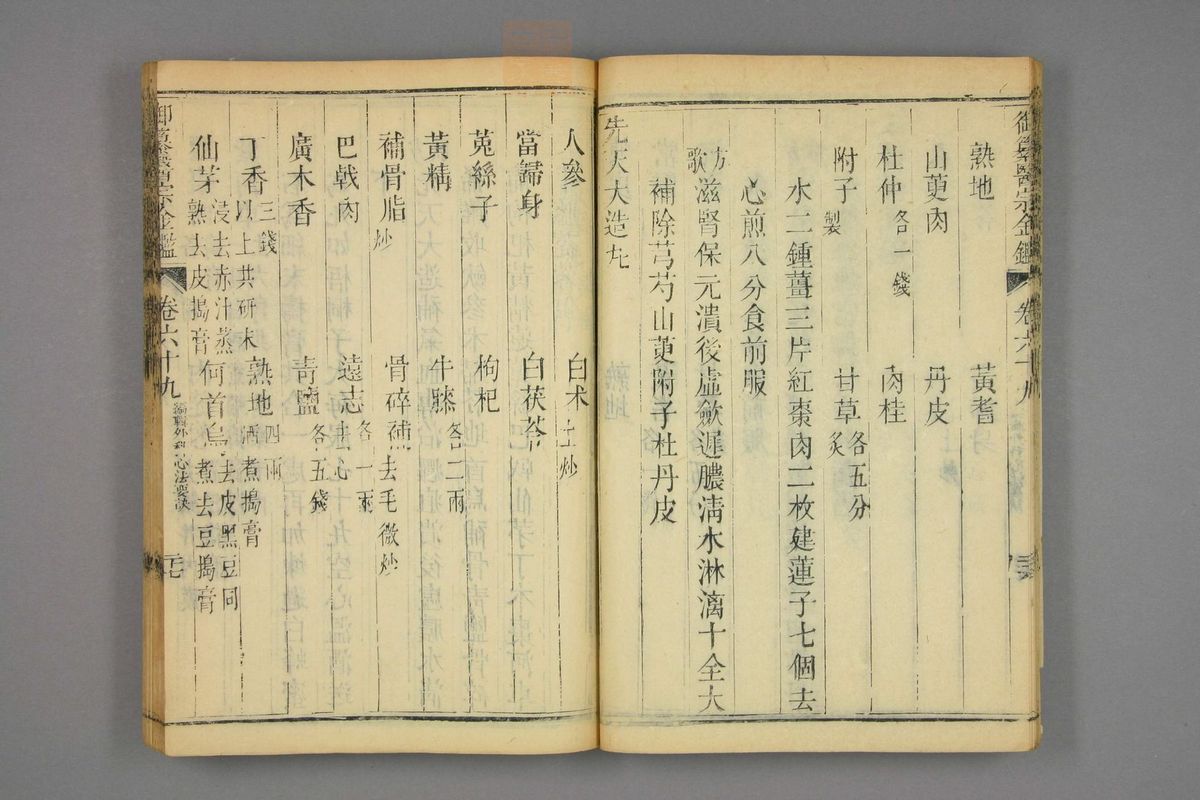 御纂醫宗金鑑 卷六十九
熟地 黃耆
山萸肉 丹皮
杜仲各一錢 肉桂
附子製 甘草炙各五分
水二鍾薑三片紅棗肉二枚建蓮子七個去
心煎八分食前服
方歌 滋腎保元潰後虛斂遲膿清水淋漓十全大
補除芎芍山萸附子杜丹皮
先天大造丸
人參 白术土炒
當歸身 白茯苓
菟絲子 枸杞
黃精 牛膝各二兩
補骨脂炒 骨碎補去毛微炒
巴戟肉 遠志去心各一兩
廣木香 青鹽各五錢
丁香三錢以上共研末 熟地四兩酒煮搗膏
仙茅浸去赤汁蒸熟去皮搗膏 何首烏去皮黑豆同煮去豆搗膏
御纂醫宗金鑑 卷六十九 編輯外科心法要訣